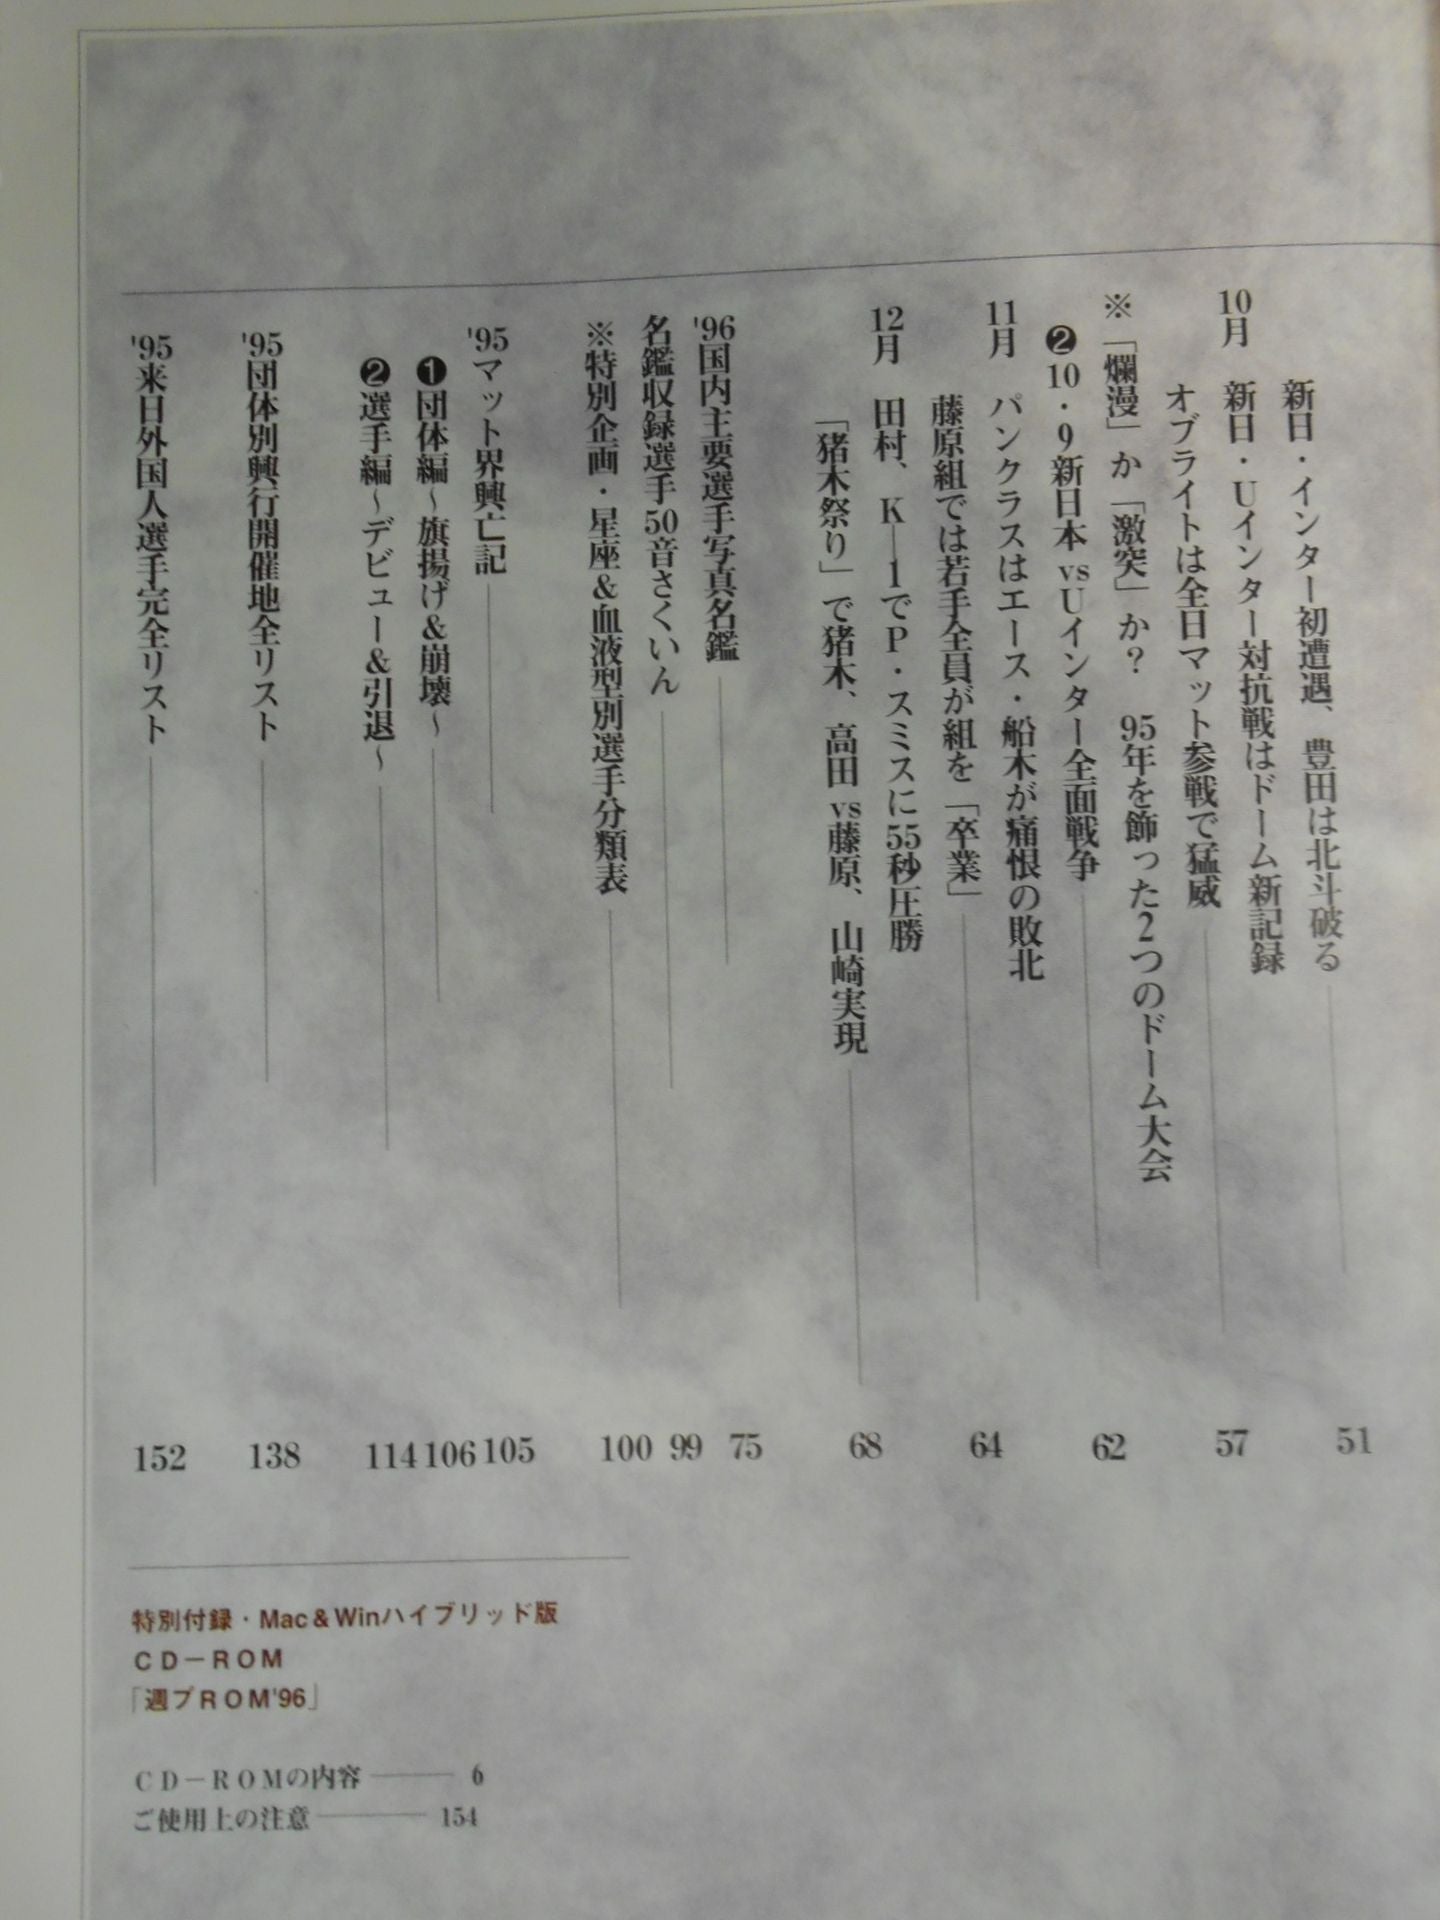 新日・インター初遭遇、豊田は北斗破る 51
10月 新日・Uインター対抗戦はドーム新記録
オブライトは全日マット参戦で猛威 57
※「爛漫」か「激突」か? 95年を飾った2つのドーム大会
❷10・9新日本vsUインター全面戦争 62
11月 パンクラスはエース・船木が痛恨の敗北
藤原組では若手全員が組を「卒業」 64
12月 田村、K―1でP・スミスに55秒圧勝
「猪木祭り」で猪木、高田vs藤原、山崎実現 68
'96国内主要選手写真名鑑 75
名鑑収録選手50音さくいん 99
※特別企画・星座&血液型別選手分類表 100
'95マット界興亡記 105
❶団体編~旗揚げ&崩壊~ 106
❷選手編~デビュー&引退~ 114
'95団体別興行開催地全リスト 138
'95来日外国人選手完全リスト 152
特別付録・Mac&Winハイブリッド版
CD－ROM
「週プROM'96」
CD－ROMの内容 6
ご使用上の注意 154